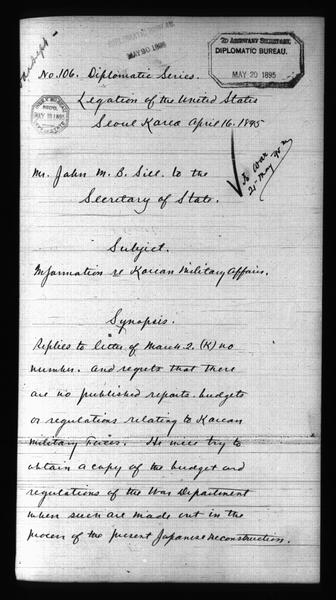 DIPLOMATIC BUREAU
MAY 20 1895
TO ASSISTANT SECRETARY,
DIPLOMATIC BUREAU.
MAY 20 1895
No. 106. Diplomatic Series.
Legation of the United States
Seoul Korea April 16. 1895
To War
21 May 95
Mr. John M. B. Sill. to the
Secretary of State.
Subject.
Information re Korean Military Affairs.
Synopsis.
Replies to letter of March 2. (K) no
number. and regrets that there
are no published reports. budgets
or regulations relating to Korean
Military Forces. He will try to
obtain a copy of the budget and
regulations of the War Department
when such are made out in the
process of the present Japanese reconstruction.